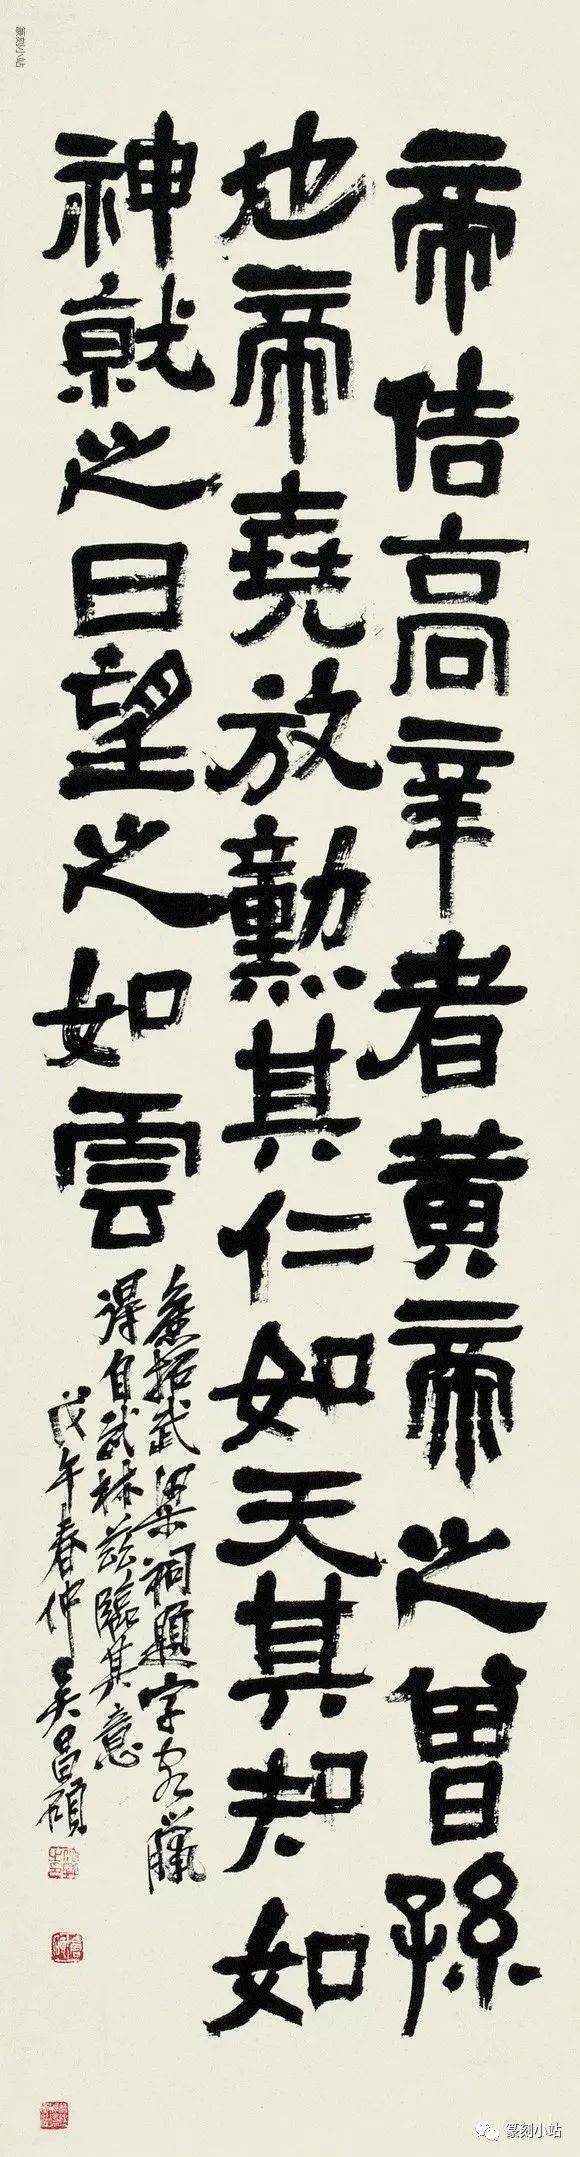 帝佶高辛者黄帝之曾孫
也帝堯放勲其仁如天其知如
神就之日望之如雲
舊拓武梁祠題字客臘
得自武林茲臨其意
戊午春仲吴昌碩
篆刻小站
篆刻小站